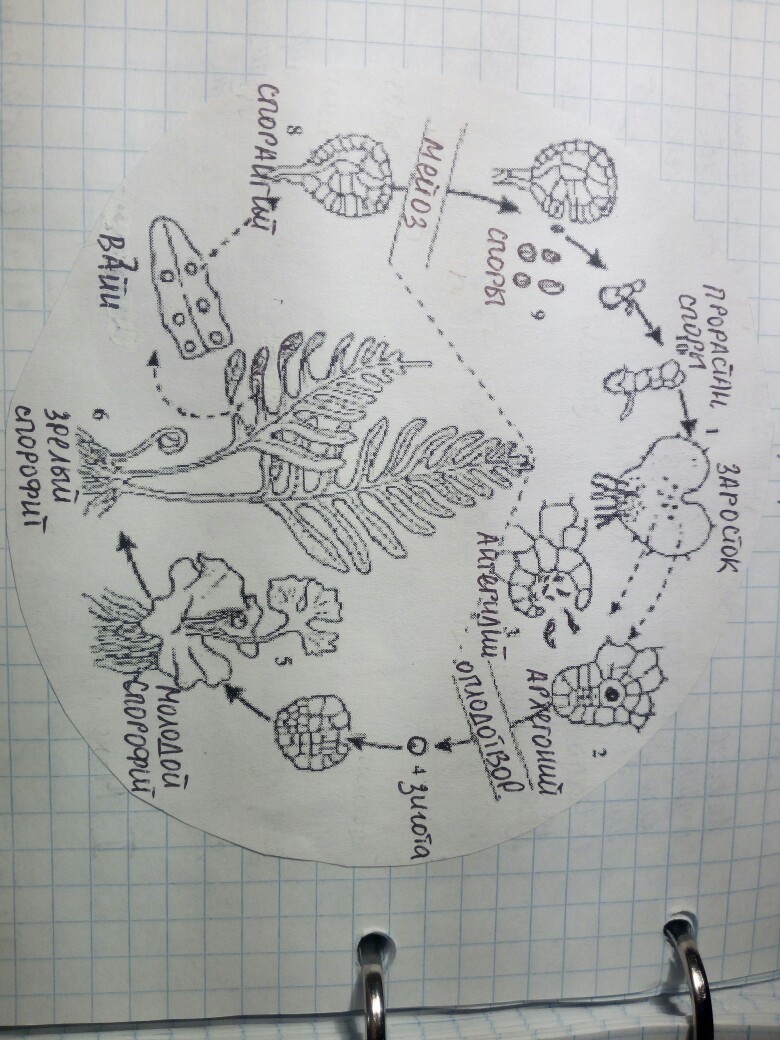 ПРОРАСТАН.
СПОРЫ
10
1
ЗАРОСТОК
СПОРЫ
9
МЕЙОЗ
8
СПОРАНГИЙ
ВАЙИ
АНТЕРИДИЙ
3
АРХЕГОНИЙ
2
ОПЛОДОТВОР.
4 ЗИГОТА
5
МОЛОДОЙ
СПОРОФИТ
6
ЗРЕЛЫЙ
СПОРОФИТ